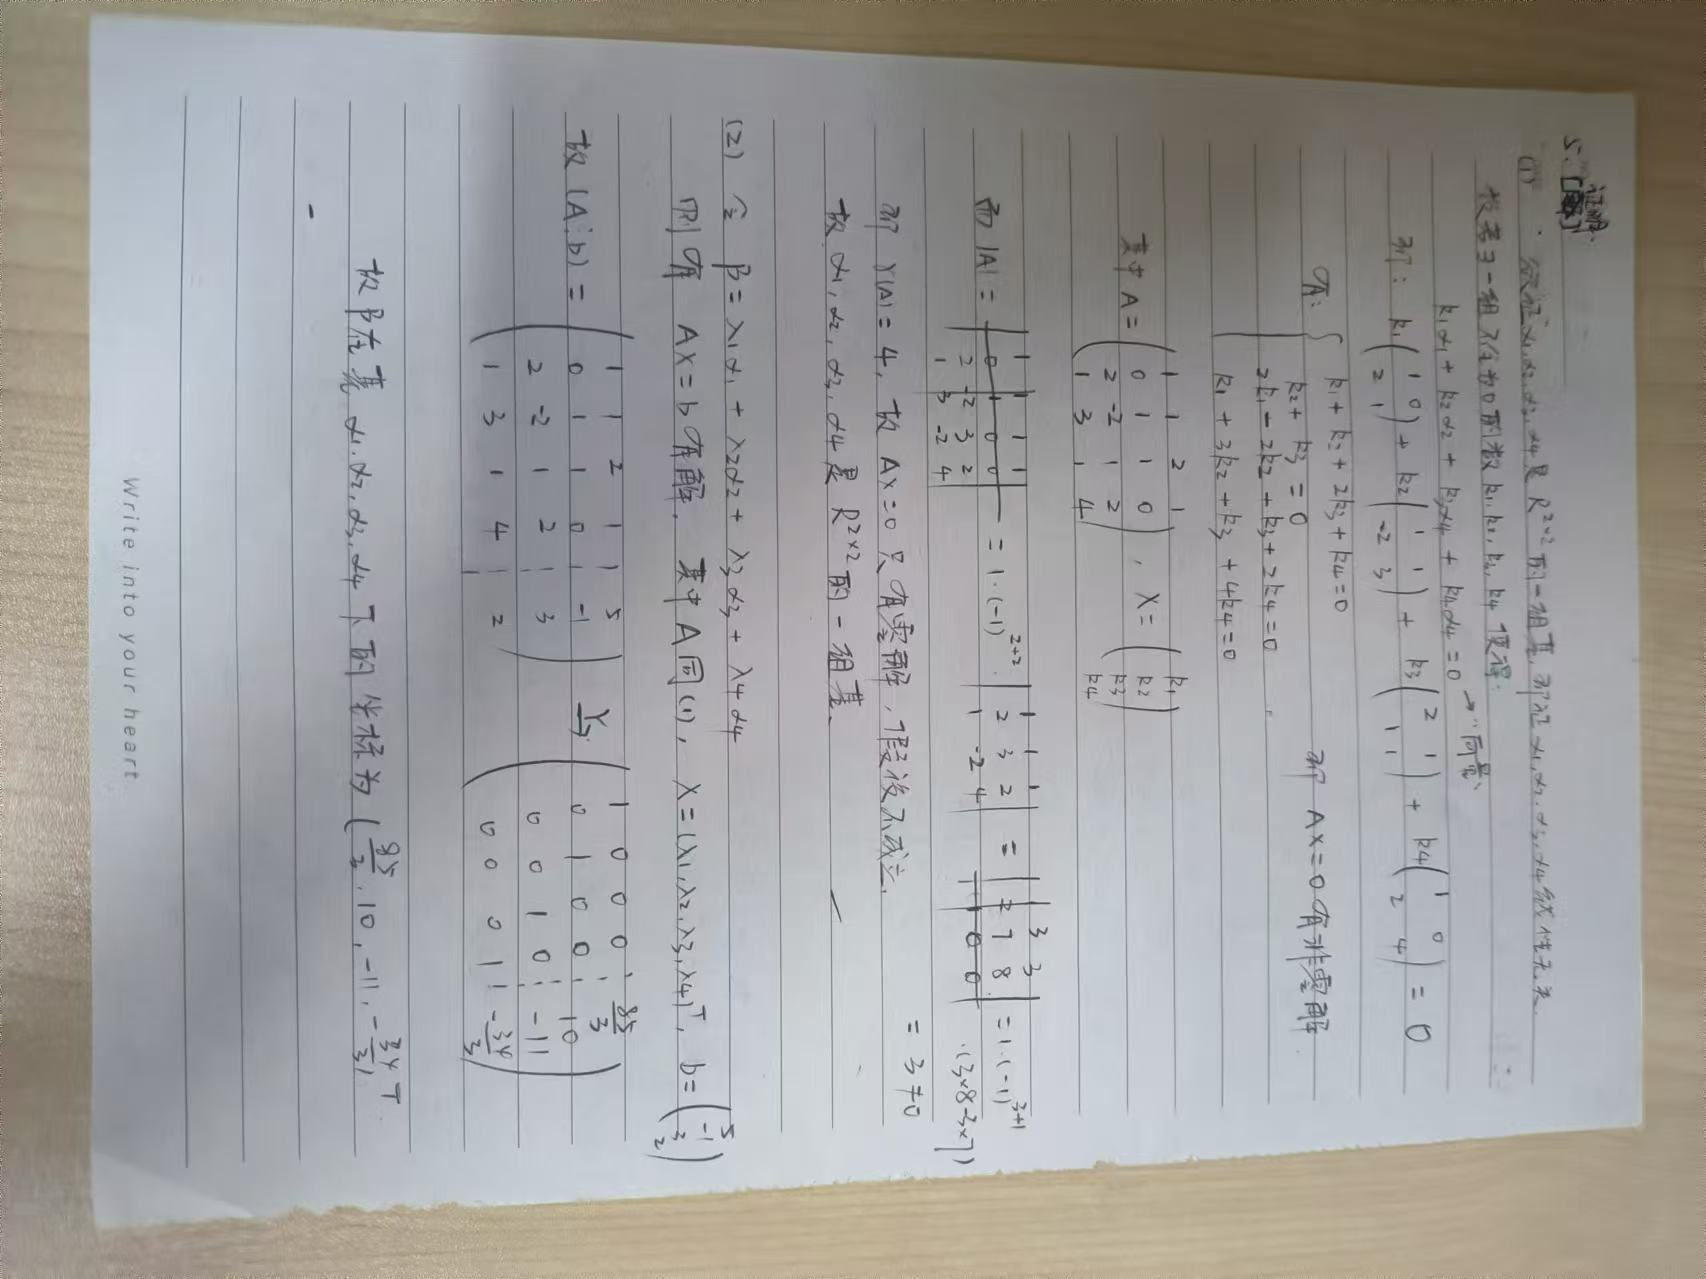 5. [证明]
(1) 欲证α1,α2,α3,α4是R^{2×2}的一组基, 即证α1,α2,α3,α4线性无关.
设若∃一组不全为0的数k1,k2,k3,k4使得:
k1α1 + k2α2 + k3α4 + k4α4 = 0 → "向量"
即: k1(1 0; 2 1) + k2(1 1; -2 3) + k3(2 1; 1 1) + k4(1 0; 2 4) = 0
有: { k1 + k2 + 2k3 + k4 = 0
k2 + k3 = 0
2k1 - 2k2 + k3 + 2k4 = 0 即 AX=0有非零解
k1 + 3k2 + k3 + 4k4 = 0
其中 A = (1 1 2 1; 0 1 1 0; 2 -2 1 2; 1 3 1 4), X = (k1 k2 k3 k4)
而 |A| = |1 1 1 1; 0 1 0 0; 2 -2 3 2; 1 3 -2 4| = 1·(-1)^{2+2}·|1 1 1; 2 3 2; 1 -2 4| = |3 3; 2 7 8; 1 0 0| = 1·(-1)^{3+1}·(3×8-3×7)
= 3≠0
即 r(A)=4, 故 AX=0 只有零解, 假设不成立.
故 α1, α2, α3, α4 是 R^{2×2} 的一组基.
(2) 令 β = λ1α1 + λ2α2 + λ3α3 + λ4α4
则有 AX=b有解. 其中A同(1), X=(λ1,λ2,λ3,λ4)^T, b=(5 -1 3 2)
故 (A⋮b) = (1 1 2 1 ⋮ 5; 0 1 1 0 ⋮ -1; 2 -2 1 2 ⋮ 3; 1 3 1 4 ⋮ 2) →r (1 0 0 0 ⋮ 85/3; 0 1 0 0 ⋮ 10; 0 0 1 0 ⋮ -11; 0 0 0 1 ⋮ -34/3)
故β在基 α1,α2,α3,α4 下的坐标为 (85/3, 10, -11, -34/3)^T.
Write into your heart